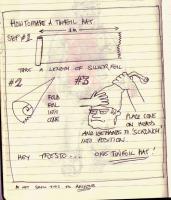 HOW TO MAKE A TINFOIL HAT.
STEP #1
1 m
TAKE A LENGTH OF SILVER FOIL
#2
#3
FOLD
FOIL
INTO
CONE
PLACE CONE
ON HEAD
AND USE HANDS TO "SCRUNCH"
INTO POSITION.
HEY PRESTO... ONE TINFOIL HAT!